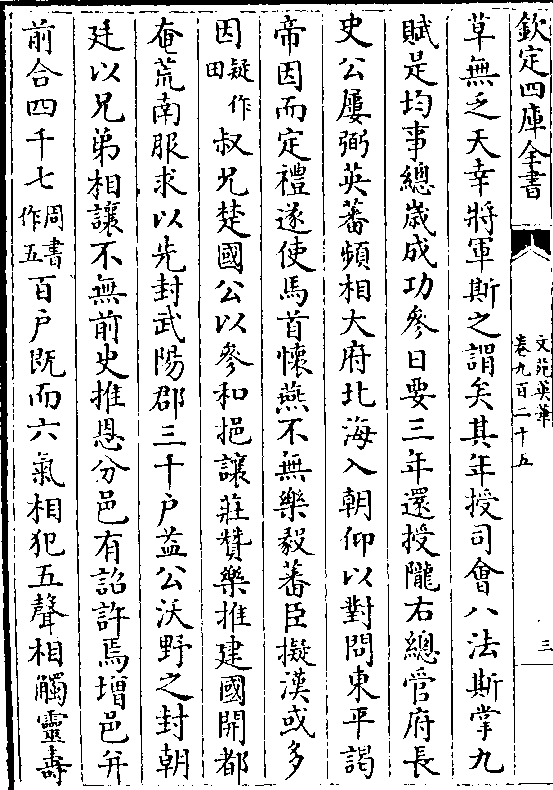 欽定四庫全書
文苑英華
卷九百二十五
三
草無乏天幸將軍斯之謂矣其年授司會八法斯掌九
賦是均事總歲成功參日要三年還授隴右總管府長
史公屢弼英蕃頻相大府北海入朝仰以對問東平謁
帝因而定禮遂使馬首懷燕不無樂毅蕃臣擬漢或多
因疑作田叔兄楚國公以參和挹讓莊贊樂推建國開都
奄荒南服求以先封武陽郡三千戶益公沃野之封朝
廷以兄弟相讓不無前史推恩分邑有詔許焉增邑并
前合四千七周書作五百戶既而六氣相犯五聲相觸靈壽